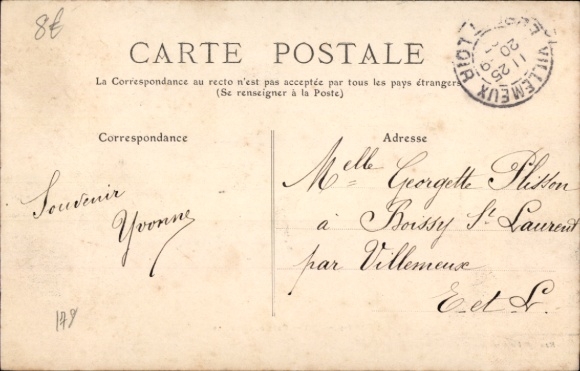 8€
CARTE POSTALE
La Correspondance au recto n'est pas acceptée par tous les pays étrangers
(Se renseigner à la Poste)
Correspondance
Adresse
Souvenir
Yvonne
Melle Georgette Plisson
à Boissy St Laurent
par Villemeux
E et L.
VILLEMEUX
11 25
20
178